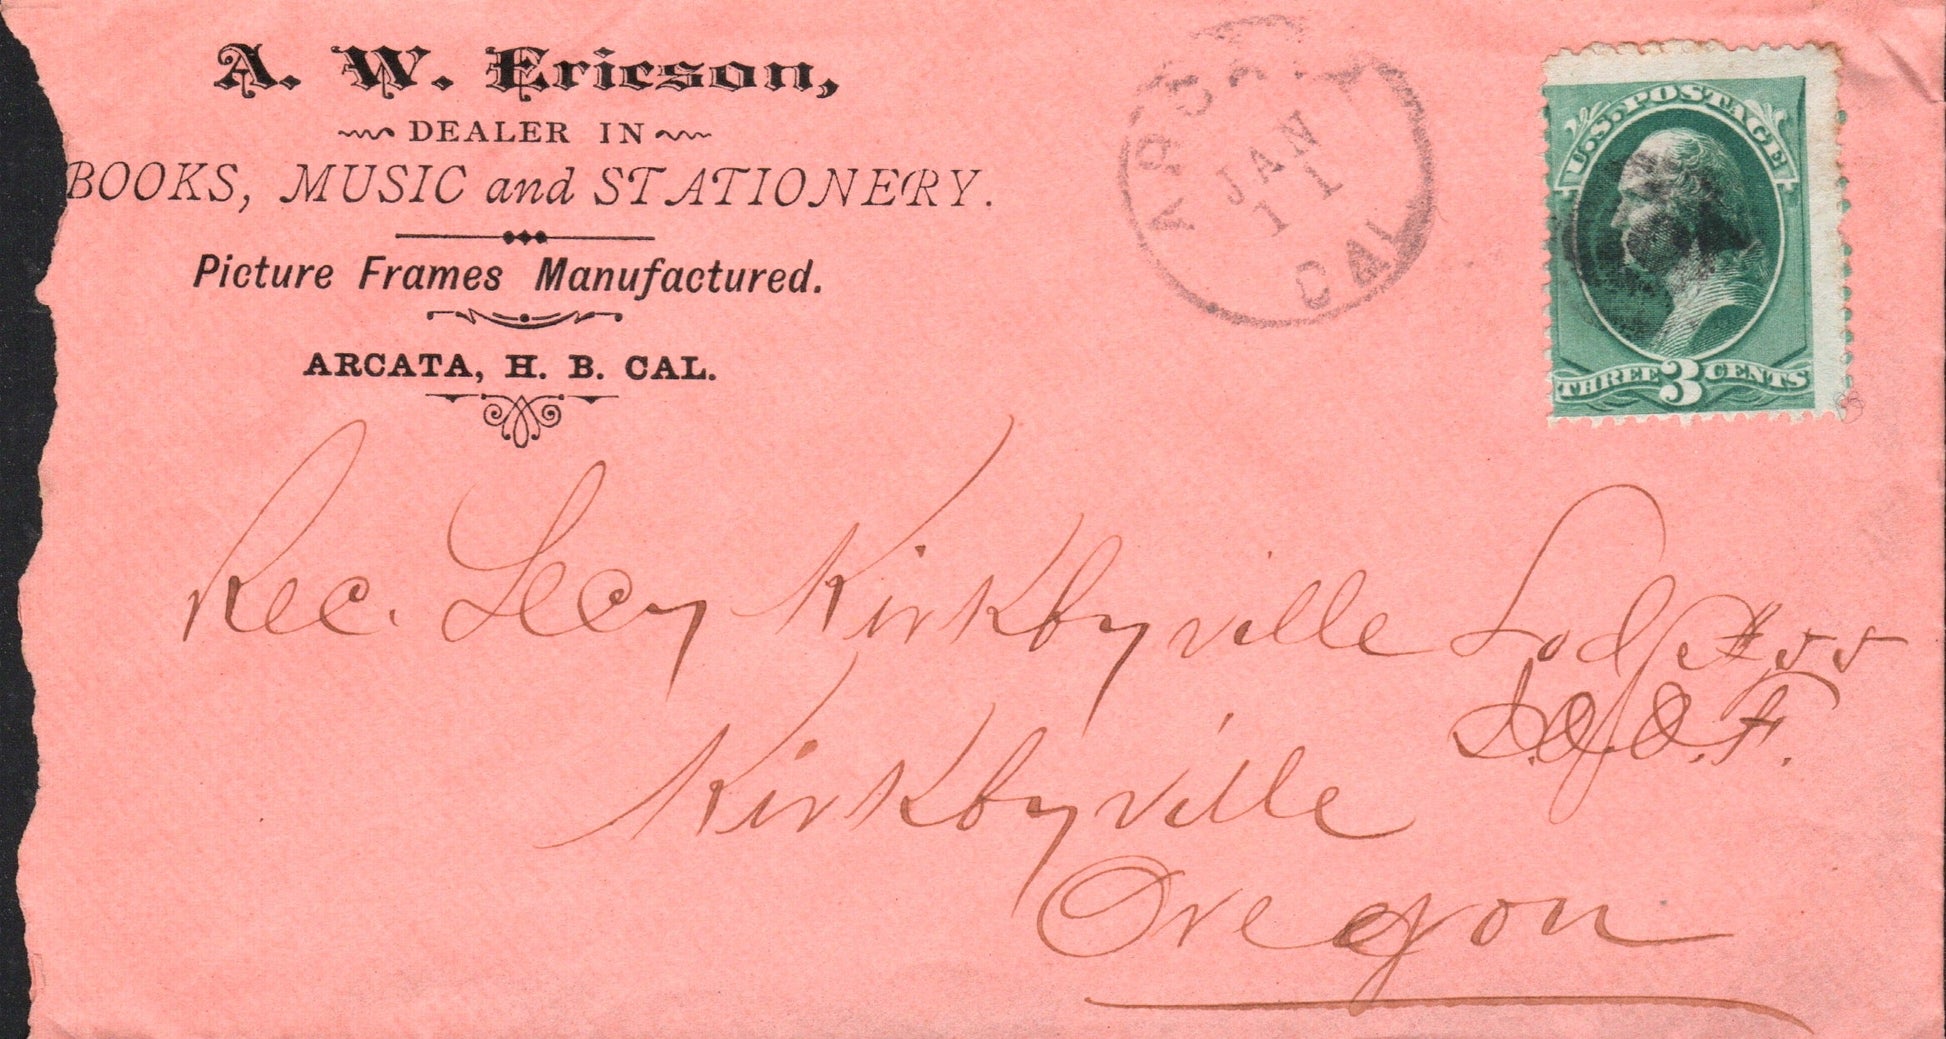 A. W. Ericson,
DEALER IN
BOOKS, MUSIC and STATIONERY.
Picture Frames Manufactured.
ARCATA, H. B. CAL.
ARCATA
JAN
11
CAL
U.S. POSTAGE
THREE 3 CENTS
Rec. Secy Kirkbyville Lodge # 55
I.O.O.F.
Kirkbyville
Oregon